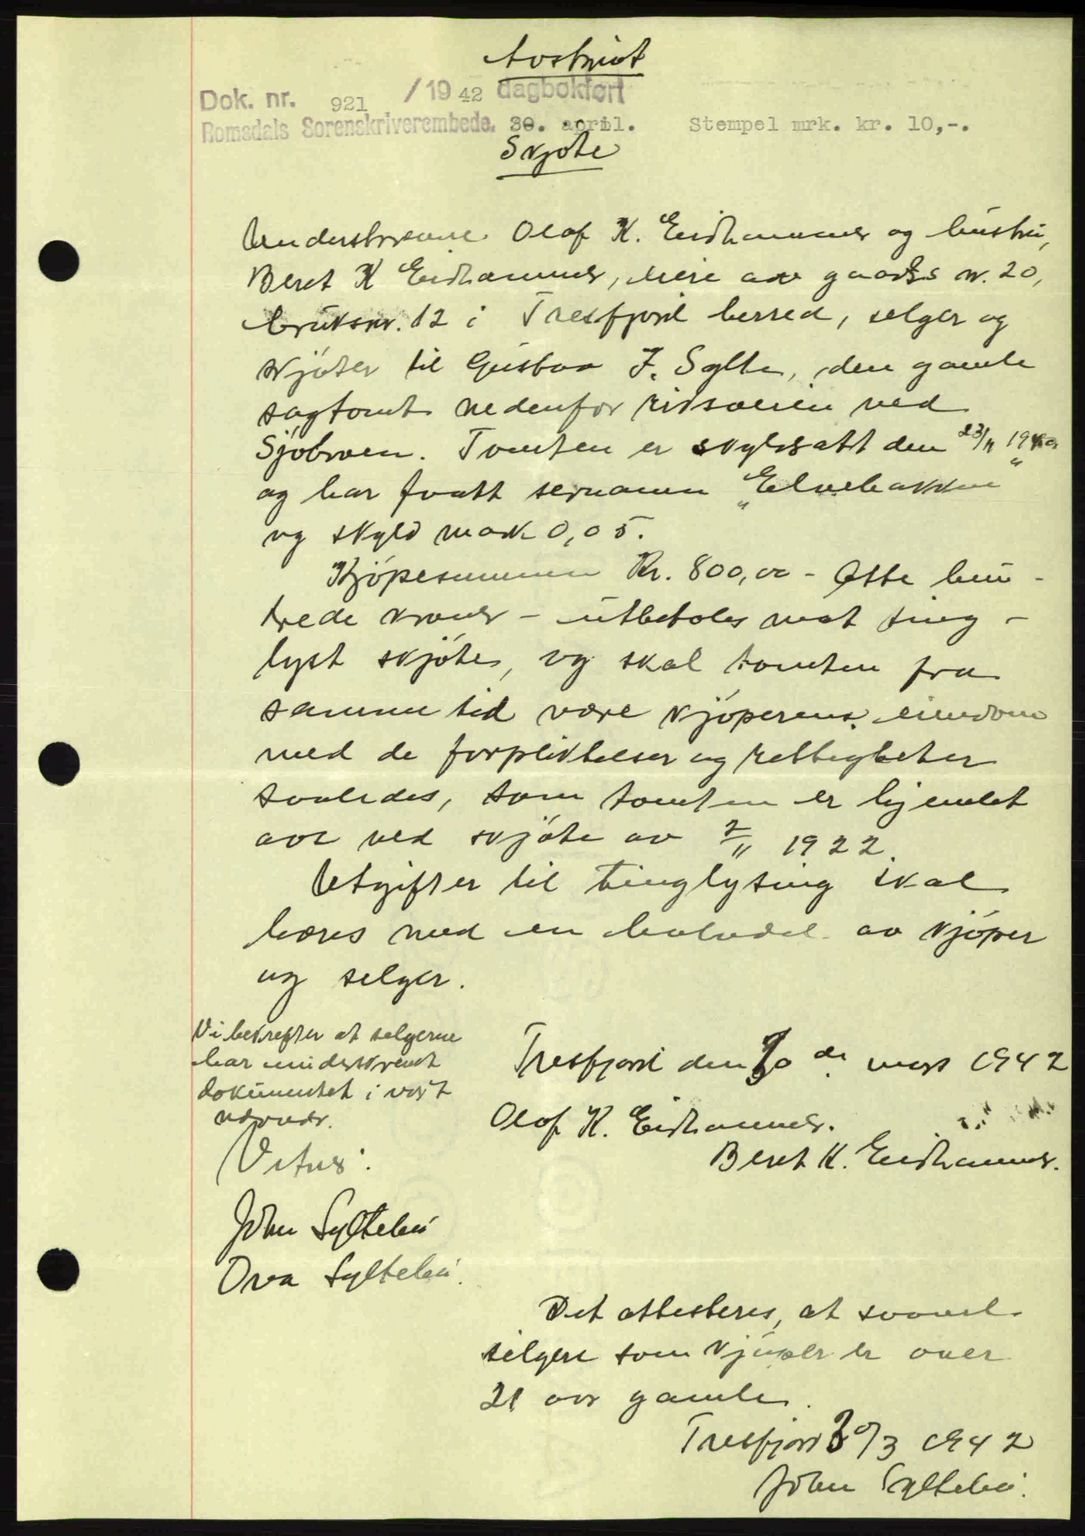 Avskrivt
Dok. nr. 921 / 19 42 dagbokført
Romsdals Sorenskriverembede. 30. april. Stempel mrk. kr. 10,-.
Skjøte
Underskrevne Olaf K. Eidhammer og hustru,
Beret K Eidhammer, eiere av gaards nr. 20,
bruksnr. 12 i Tresfjord herred, selger og
skjøter til Gustav J. Sylte, den gamle
sagtomt nedenfor riksveien ved
Sjøbroen. Tomten er skyldsatt den 23/11
og har faatt sernavn "Elvebakken"
og skyld mark 0,05.
Kjøpesummen Kr. 800,00 - Otte hun-
drede kroner - utbetales mot ting-
lyst skjøte, og skal tomten fra
samme tid være kjøperens eiendom
med de forpliktelser og rettigheter
saaledes, som tomten er hjemlet
oss ved skjøte av 2/11 1922.
Utgifter til tinglysing skal
bæres med en halvdel av kjøper
og selger.
Vi bekrefter at selgerne
har underskrevet
dokumentet i vort
nærvær.
Vitner:
John Syltebø
Ova Syltebø.
Tresfjord den 30 de mars 1942
Olaf K. Eidhammer.
Beret K. Eidhammer.
Det attesteres, at saavel
selgere som kjøper er over
21 aar gamle.
Tresfjord 30/3 1942
John Syltebø.